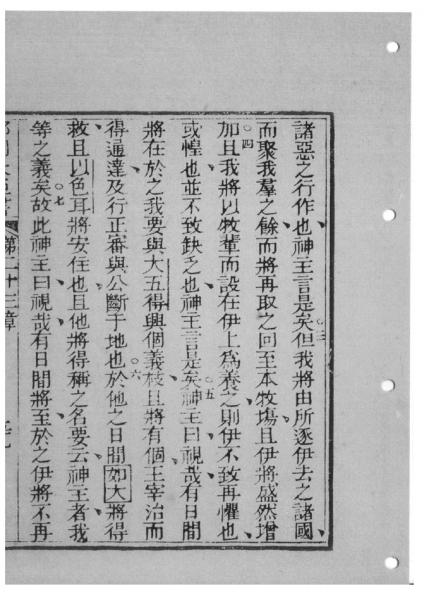 諸惡之行作也神主言是矣但我將由所逐伊去之諸國
而聚我羣之餘而將再取之回至本牧塲且伊將盛然增
加且我將以牧輩而設在伊上為養之則伊不致再懼也
或惶也並不致缺乏也神主言是矣神主曰視哉有日間
將在於之我要與大五得興個義枝且將有個王宰治而
得通達及行正審與公斷于地也於他之日間如大將得
救且以色耳將安住也且他將得稱之名要云神主者我
等之義矣故此神主曰視哉有日間將至於之伊將不再
第二十三章